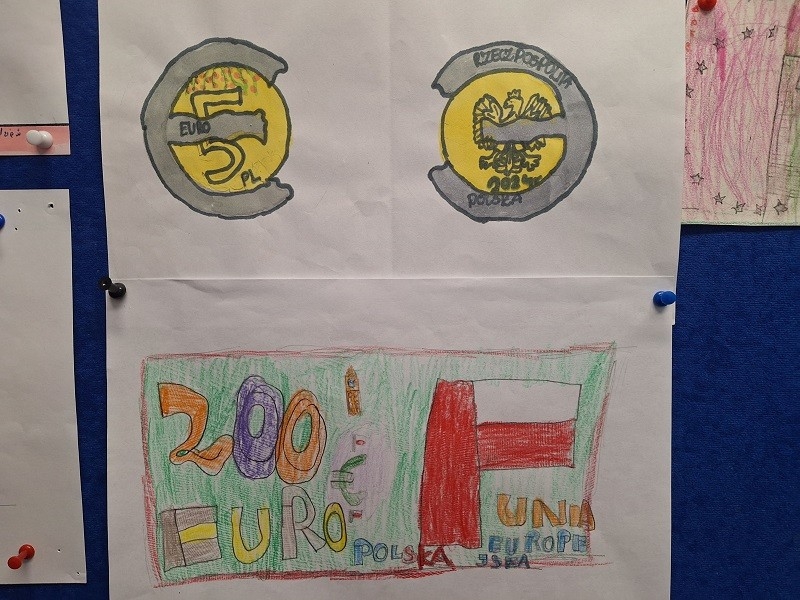 5
EURO
PL
RZECZPOSPOLITA
2024
POLSKA
200
€
EURO
POLSKA
UNIA
EUROPE
JSKA